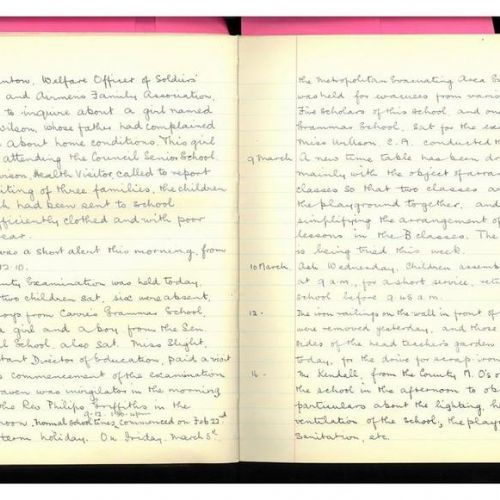 Welfare Officer of Soldiers'
and Airmens Family Association,
to inquire about a girl named
Wilson, whose father had complained
about home conditions. This girl
attending the Council Senior School.
Health Visitor, called to report
visiting of three families, the children
had been sent to school
clothed and with poor
was a short alert this morning, from
Examination was held today.
two children sat. six were absent,
boys from Carre's Grammar School,
a girl and a boy from the Sen.
School also sat. Miss Slight,
Director of Education, paid a visit
commencement of the examination
was invigilator in the morning
the Rev Philips Griffiths in the
Normal school times commenced on Feb 22nd
term holiday. On Friday. March 5th
the Metropolitan Evacuating Area
was held for evacuees from
Five Scholars of this School, and
Grammar School, Sat for the
Miss Wilson, E.A. conducted
9 March. A new time table has been
mainly with the object of
classes so that two classes
the playground together, and
simplifying the arrangement of
lessons in the B classes. The
is being tried this week.
10 March. Ash Wednesday. Children
at 9 a.m., for a short service,
school before 9.45 a.m.
12 - The iron railings on the wall in front of
were removed yesterday, and those
sides of the head teacher's garden
today, for the drive for scrap iron
16 - Kendall, from the County M.O's
the school in the afternoon to
particulars about the lighting,
ventilation of the School, the
Sanitation, etc.